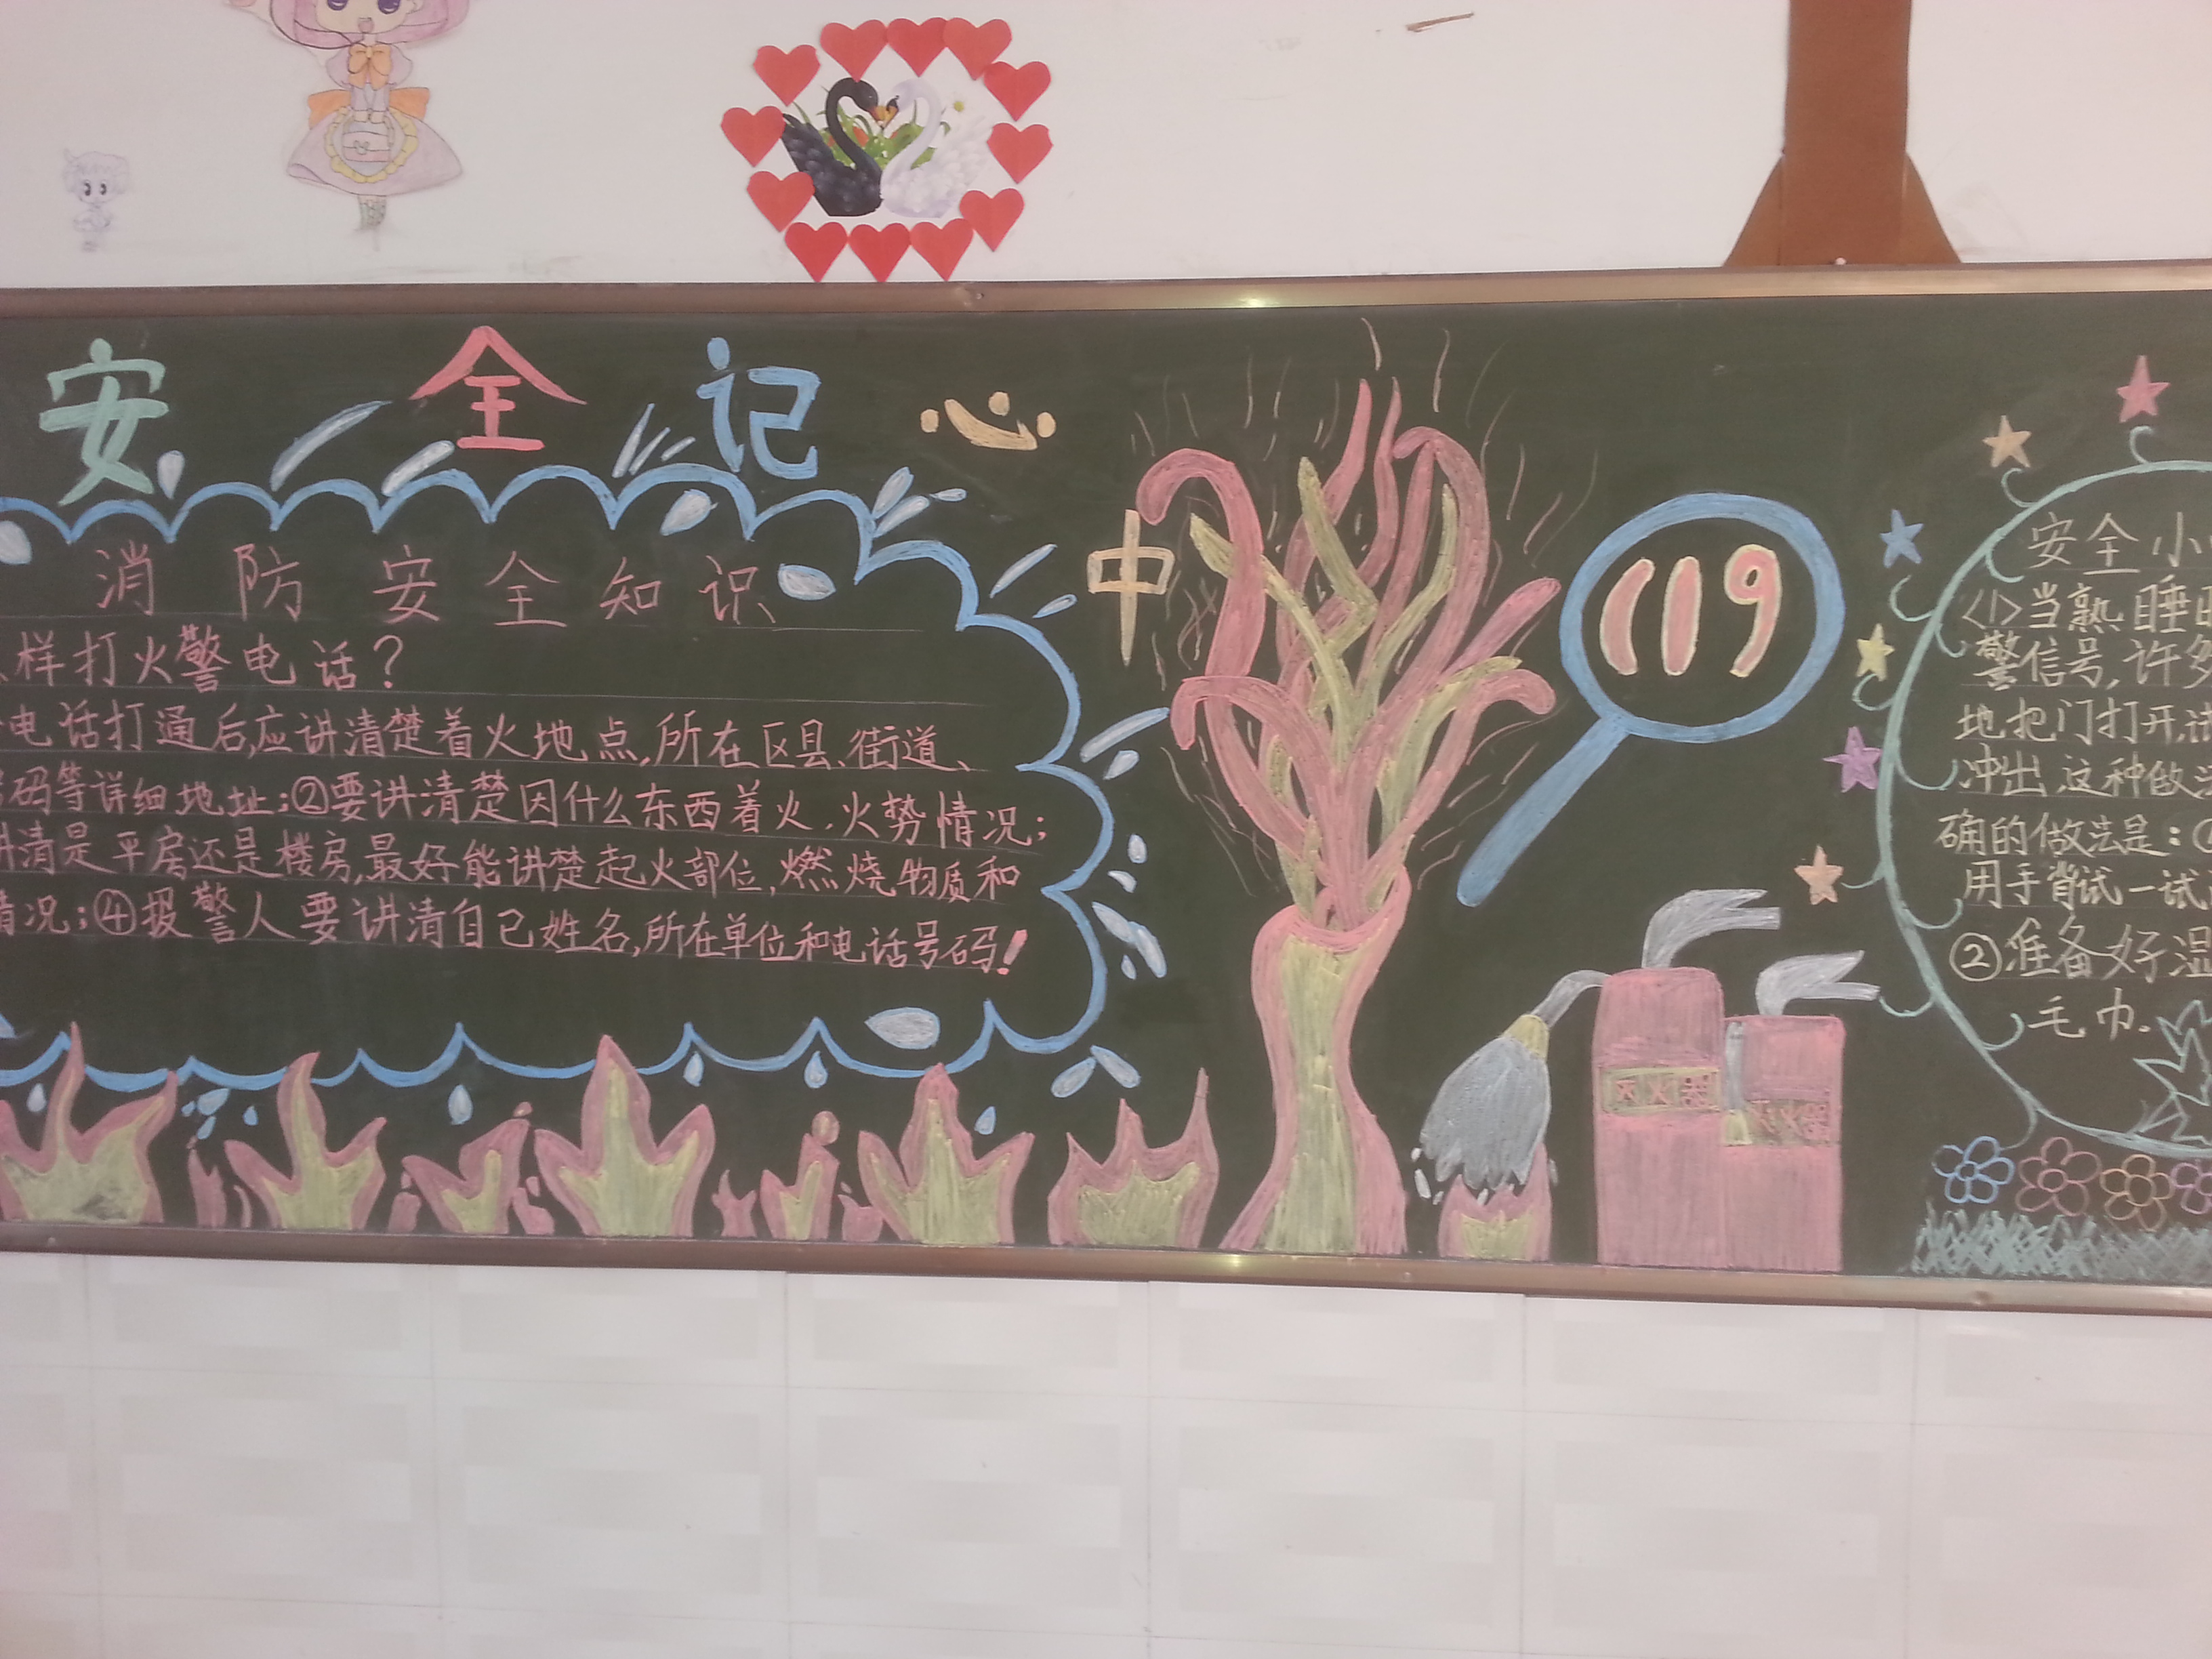 安全记心中
消防安全知识
样打火警电话?
电话打通后,应讲清楚着火地点,所在区县、街道、
码等详细地址;②要讲清楚因什么东西着火,火势情况;
讲清是平房还是楼房,最好能讲楚起火部位,燃烧物质和
情况;④报警人要讲清自己姓名,所在单位和电话号码!
119
灭火器
灭火器
安全小
<1>当熟睡
警信号,许多
地把门打开,
冲出,这种做法
确的做法是:
用手背试一试
②准备好湿
毛巾.